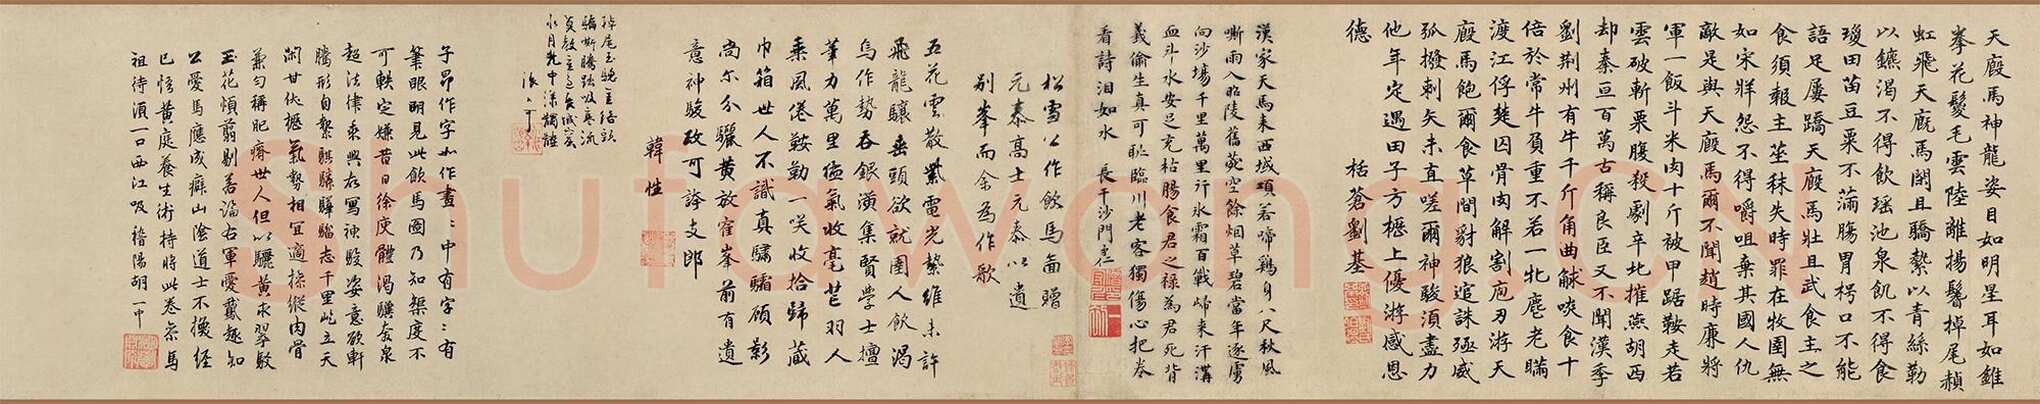 天廄馬神龍姿目如明星耳如錐
拳花鬉毛雲陸離揚鬐掉尾赬
虹飛天廄馬閑且驕縶以青絲勒
以鑣渴不得飲瑶池泉飢不得食
瓊田苗豆粟不蒲膓胃枵口不能
語足屢蹻天廄馬壯且武食主之
食須報主茎秣失時罪在牧圉無
如宋牂怨不得嚼咀棄其國人仇
敵是與天廄馬爾不聞趙時廉將
軍一飯斗米肉十斤被甲踞鞍走若
雲破斬栗腹殺劇辛北摧燕胡西
却秦亘百萬古稱良臣又不聞漢季
劉荆州有牛千斤角曲觩啖食十
倍於常牛負重不若一牝麀老瞞
渡江俘楚囚骨肉解割庖刃游天
廄馬飽爾食草間豺狼逭誅殛威
弧撥剌矢未直嗟爾神駿湏盡力
他年定遇田子方櫪上優游感恩
德
栝蒼劉基
漢家天馬来西域項若啼鷄身八尺秋風
嘶雨入昭陵舊薨空餘烟草碧當年逐虜
向沙塲千里萬里行氷霜百戰歸来汗溝
血斗水安足充枯腸食君之祿為君死背
義偷生真可恥臨川老客獨傷心把卷
看詩淚如水
長干沙門至仁
松雪公作飲馬畵贈
元泰高士元泰以遺
別峯而余為作歌
五花雲散紫電光縶維未許
飛龍驤垂頭欲就圉人飲渴
烏作勢吞銀潢集賢學士壇
筆力萬里猛氣收毫芒羽人
乗風倦鞍勒一咲收拾歸蔵
巾箱世人不識真驌驦顧影
尚尔分驪黄放隺峯前有遺
意神駿政可誇支郎
韓性
掉尾玉驄金絡頭
驕嘶騰跃吸寒流
水月光中漾髑髏
子昂作字如作畫畫中有字字有
筆眼明見此飲馬圖乃知榘度不
可軼定嫌昔日徐庾體渴驥奔泉
超法律乘興故寫神駿姿意欲軒
騰形自縶騏驎驊騮志千里屹立天
閑甘伏櫪氣勢相宜適操縱肉骨
兼勻稱肥瘠世人但以驪黄求翠鬣
玉花煩翦剔善論右軍愛戴逵知
公愛馬應成癖山陰道士不換經
已悟黄庭養生術持將此卷奈馬
祖待湏一口西江吸稽陽胡一中
Shufawang.CN